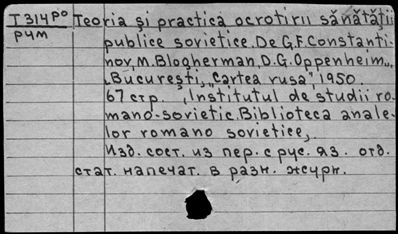 T314РО Teoria şi practica ocrotirii sănătăţii
РУМ publice sovietice. De G.F. Constanti-
nov, M. Blogherman, D.G. Oppenheim...
Bucureşti, „Cartea rusa", 1950.
67 стр. „Institutul de studii ro-
mano-sovietic. Biblioteca anale-
lor romano sovietice„.
Изд. сост. из пер. с рус. яз. отд.
стат. напечат. в разн. журн.